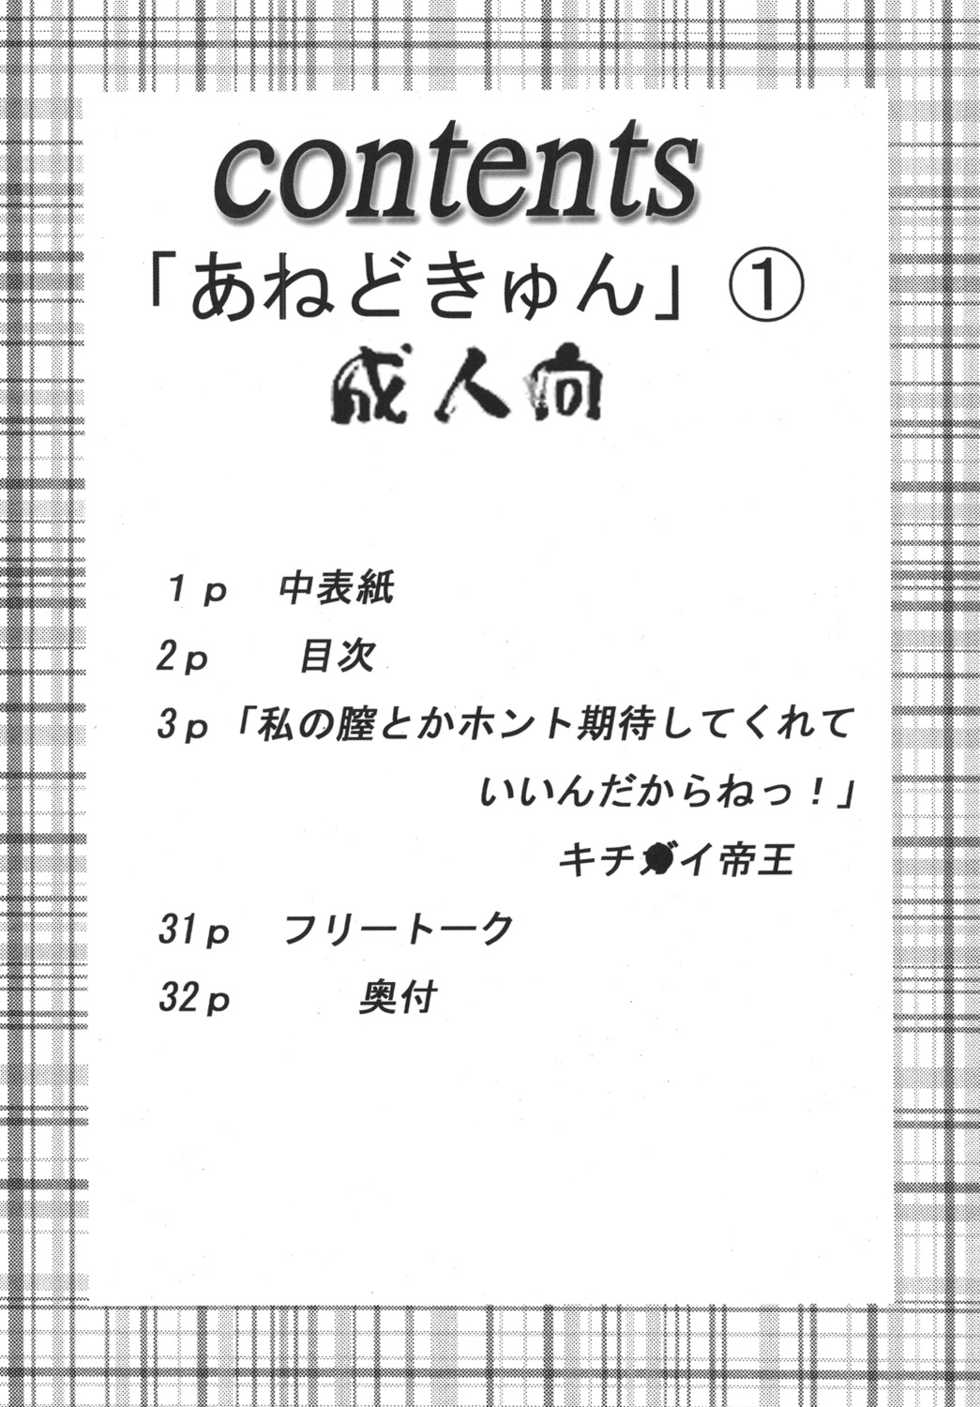 contents
「あねどきゅん」①
成人向
1p 中表紙
2p 目次
3p「私の膣とかホント期待してくれて
いいんだからねっ！」
キチ●イ帝王
31p フリートーク
32p 奥付